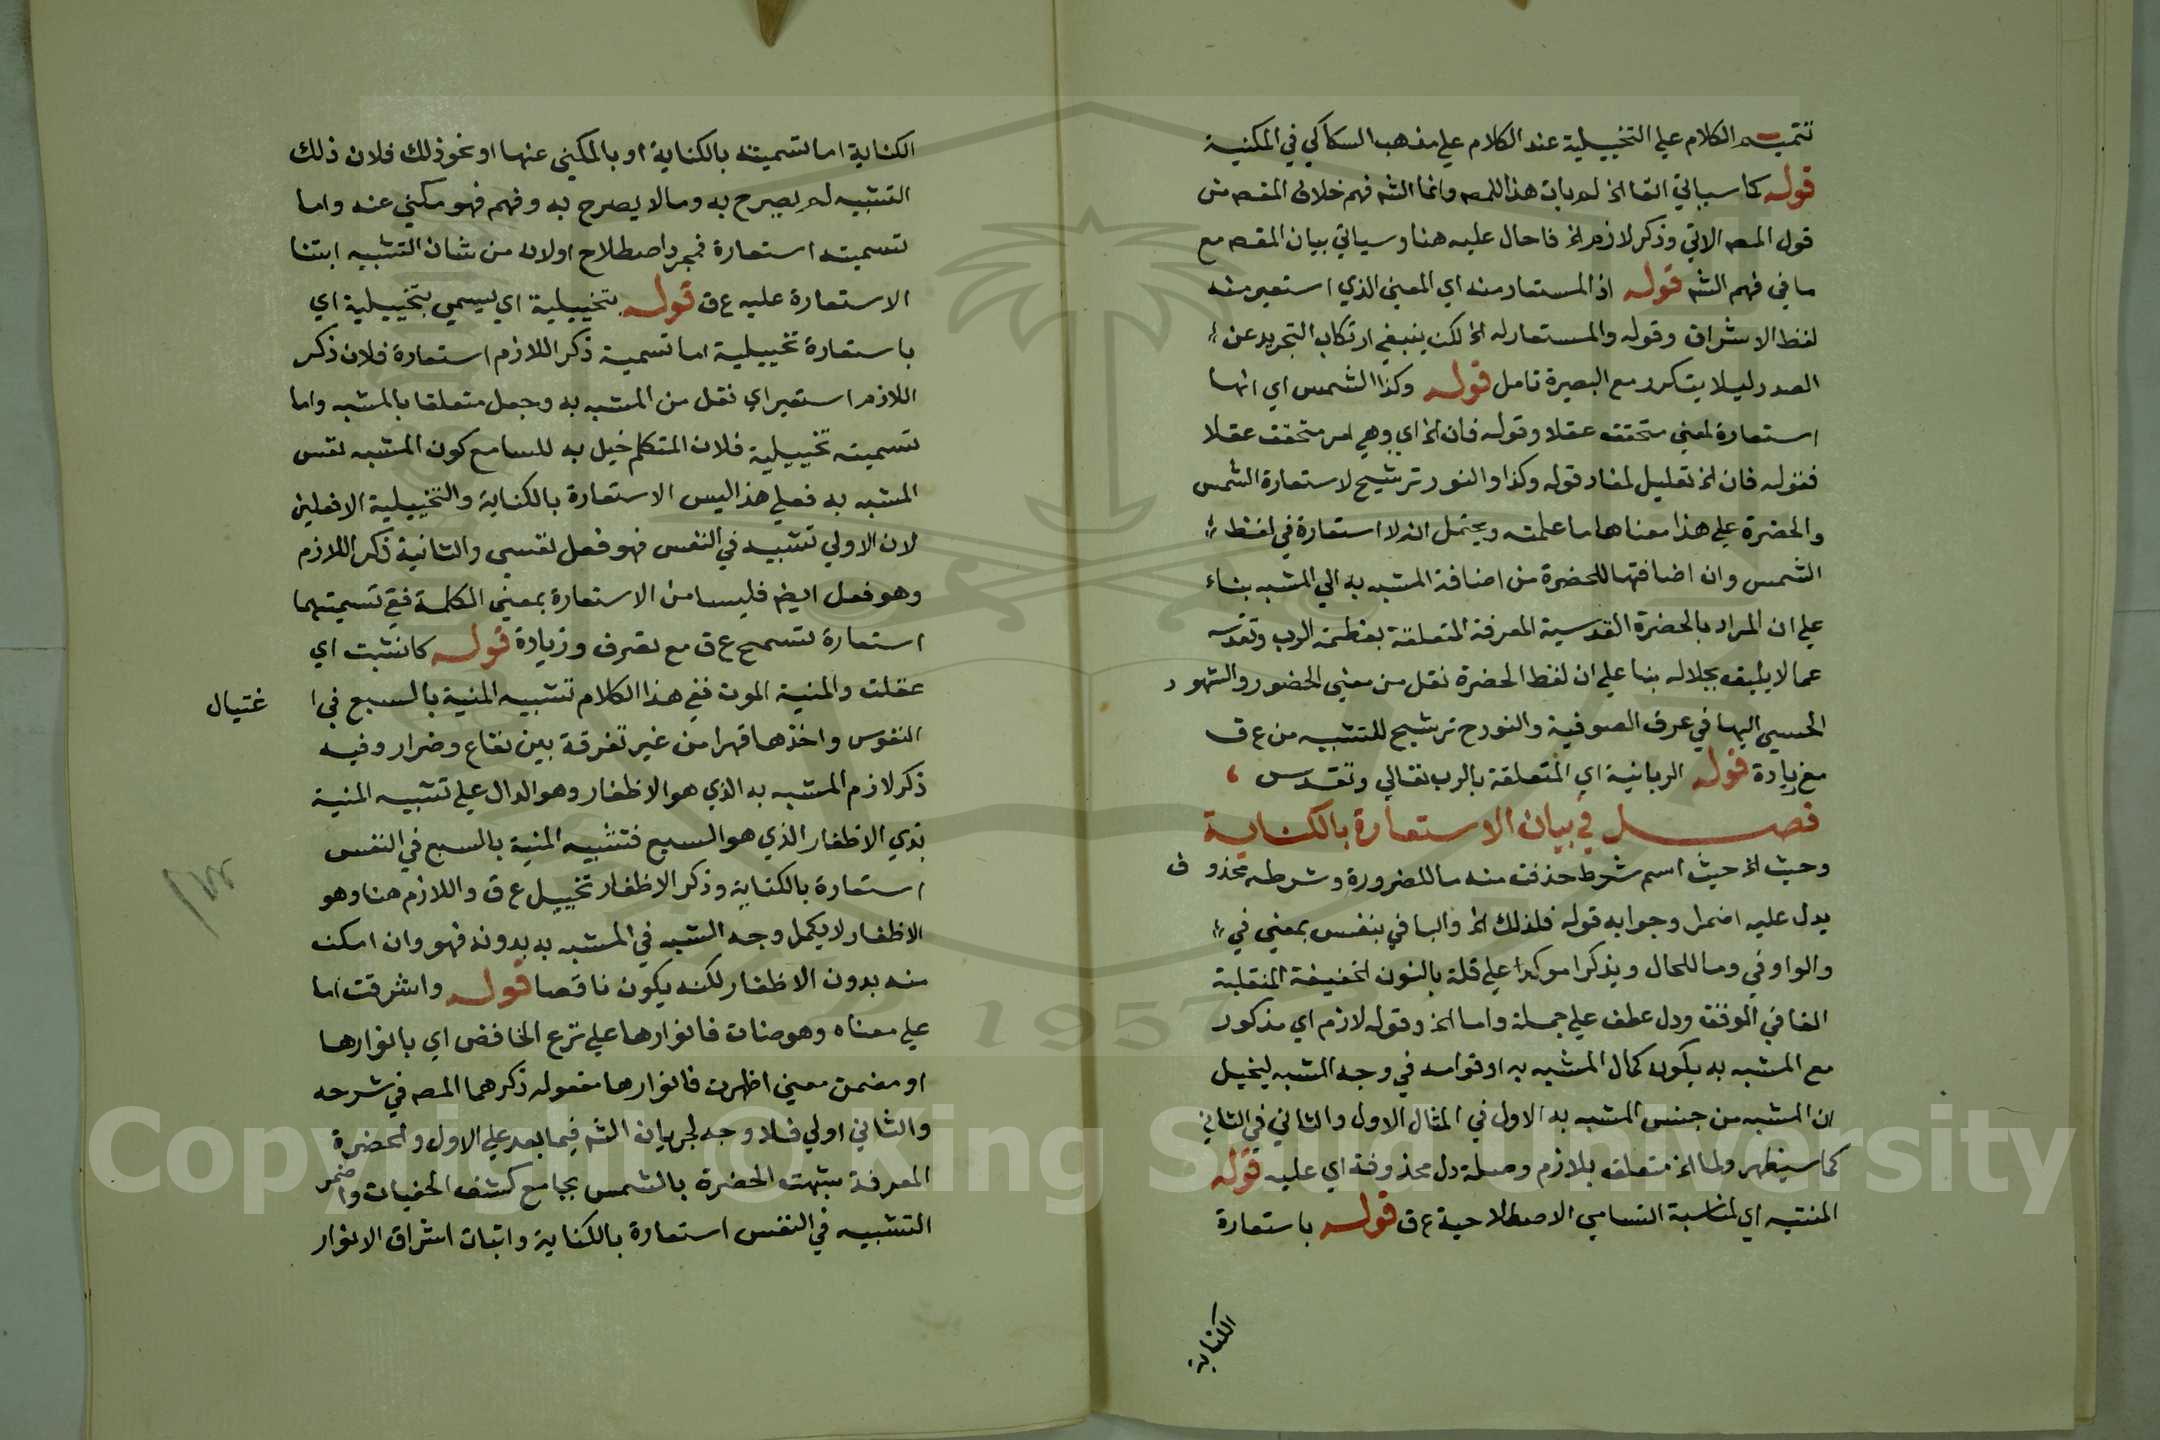 تتميم الكلام علي التخييلية عند الكلام علي مذهب السكاكي في المكنية
قوله كما سياتي لم يات هذا للمصه وانما الشه فهم خلاف المقصه من
قول المصه الاتي وذكر لازم الخ فاحال عليه هنا وسياتي بيان المقصه مع
ما في فهم الشه قوله اذ المستعار منه اي المعني الذي استعير منه
لفظ الاشراق وقوله والمستعار له الخ لكن ينبغي ارتكاب التجريد عن
الصدر ليلا يتكرر مع البصيرة تامل قوله وكذا الشمس اي انها
استعارة لمعني متحقق عقلا وقوله فان الخ اي وهي امر متحقق عقلا
فقوله فان الخ تعليل لمفاد قوله وكذا والنور ترشيح لاستعارة الشمس
والحضرة علي هذا معناها ما علمته ويحتمل انه لا استعارة في لفظ
الشمس وان اضافتها للحضرة من اضافة المشبه به الي المشبه بناء
علي ان المراد بالحضرة القدسية المعرفة المتعلقة بعظمة الرب وتقدسه
عما لا يليق بجلاله بنا علي ان لفظ الحضرة نقل من معني الحضور والشهود
الحسي اليها في عرف الصوفية والنورح ترشيح للتشبيه من ع ق
مع زيادة قوله الربانية اي المتعلقة بالرب تعالي وتقدس
فصل في بيان الاستعارة بالكناية
وحيث الخ حيث اسم شرط حذفت منه ما للضرورة وشرطه محذوف
يدل عليه اضمر وجوابه قوله فلذلك الخ والبا في بنفس بمعني في
والواو في وما للحال ويذكرا موكدا علي قلة بالنون الخفيفة المنقلبة
الفا في الوقف ودل عطف علي جملة واما الخ وقوله لازم اي مذكور
مع المشبه به يكون كمال المشبه به او قوامه في وجه الشبه ليخيل
ان المشبه من جنس المشبه به الاول في المثال الاول والثاني في الثاني
كما سيظهر ولما الخ متعلق بلازم وصلة دل محذوفة اي عليه قوله
المنتبه اي لمناسبة التسامي الاصطلاحية ع ق قوله باستعارة
الكناية
الكناية اما تسميته بالكناية او بالمكني عنها او نحو ذلك فلان ذلك
التشبيه لم يصرح به وما لا يصرح به وفهم فهو مكني عنه واما
تسميته استعارة فمجرد اصطلاح او لان من شان التشبيه ابتنا
الاستعارة عليه ع ق قوله بتخييلية اي يسمي بتخييلية اي
باستعارة تخييلية اما تسمية ذكر اللازم استعارة فلان ذكر
اللازم استعير اي نقل من المشبه به وجعل متعلقا بالمشبه واما
تسميته تخييلية فلان المتكلم خيل به للسامع كون المشبه نفس
المشبه به فعلي هذا ليس الاستعارة بالكناية والتخييلية الا فعلين
لان الاولي تشبيه في النفس فهو فعل نفسي والثانية ذكر اللازم
وهو فعل ايضه فليسا من الاستعارة بمعني الكلمة ففي تسميتهما
استعارة تسميح ع ق مع تصرف وزيادة قوله كانشبت اي
علقت والمنية الموت ففي هذا الكلام تشبيه المنية بالسبع في اغتيال
النفوس واخذها قهرا من غير تفرقة بين نفاع وضرار وفيه
ذكر لازم المشبه به الذي هو الاظفار وهو الدال علي تشبيه المنية
بذي الاظفار الذي هو السبع فتشبيه المنية بالسبع في النفس
استعارة بالكناية وذكر الاظفار تخييل ع ق واللازم هنا وهو
الاظفار لا يكمل وجه الشبه في المشبه به بدونه فهو وان امكن
منه بدون الاظفار لكنه يكون ناقصا قوله واشرقت اما
علي معناه وهو ضات فانوارها علي نزع الخافض اي بانوارها
او مضمن معني اظهرت فانوارها مفعوله ذكرهما المصه في شرحه
والثاني اولي فلا وجه لجريان الشه فيما بعد علي الاول والحضرة
المعرفة شبهت الحضرة بالشمس بجامع كشف الخفيات واضمر
التشبيه في النفس استعارة بالكناية واثبات اشراق الانوار
Copyright © King Saud University
1957